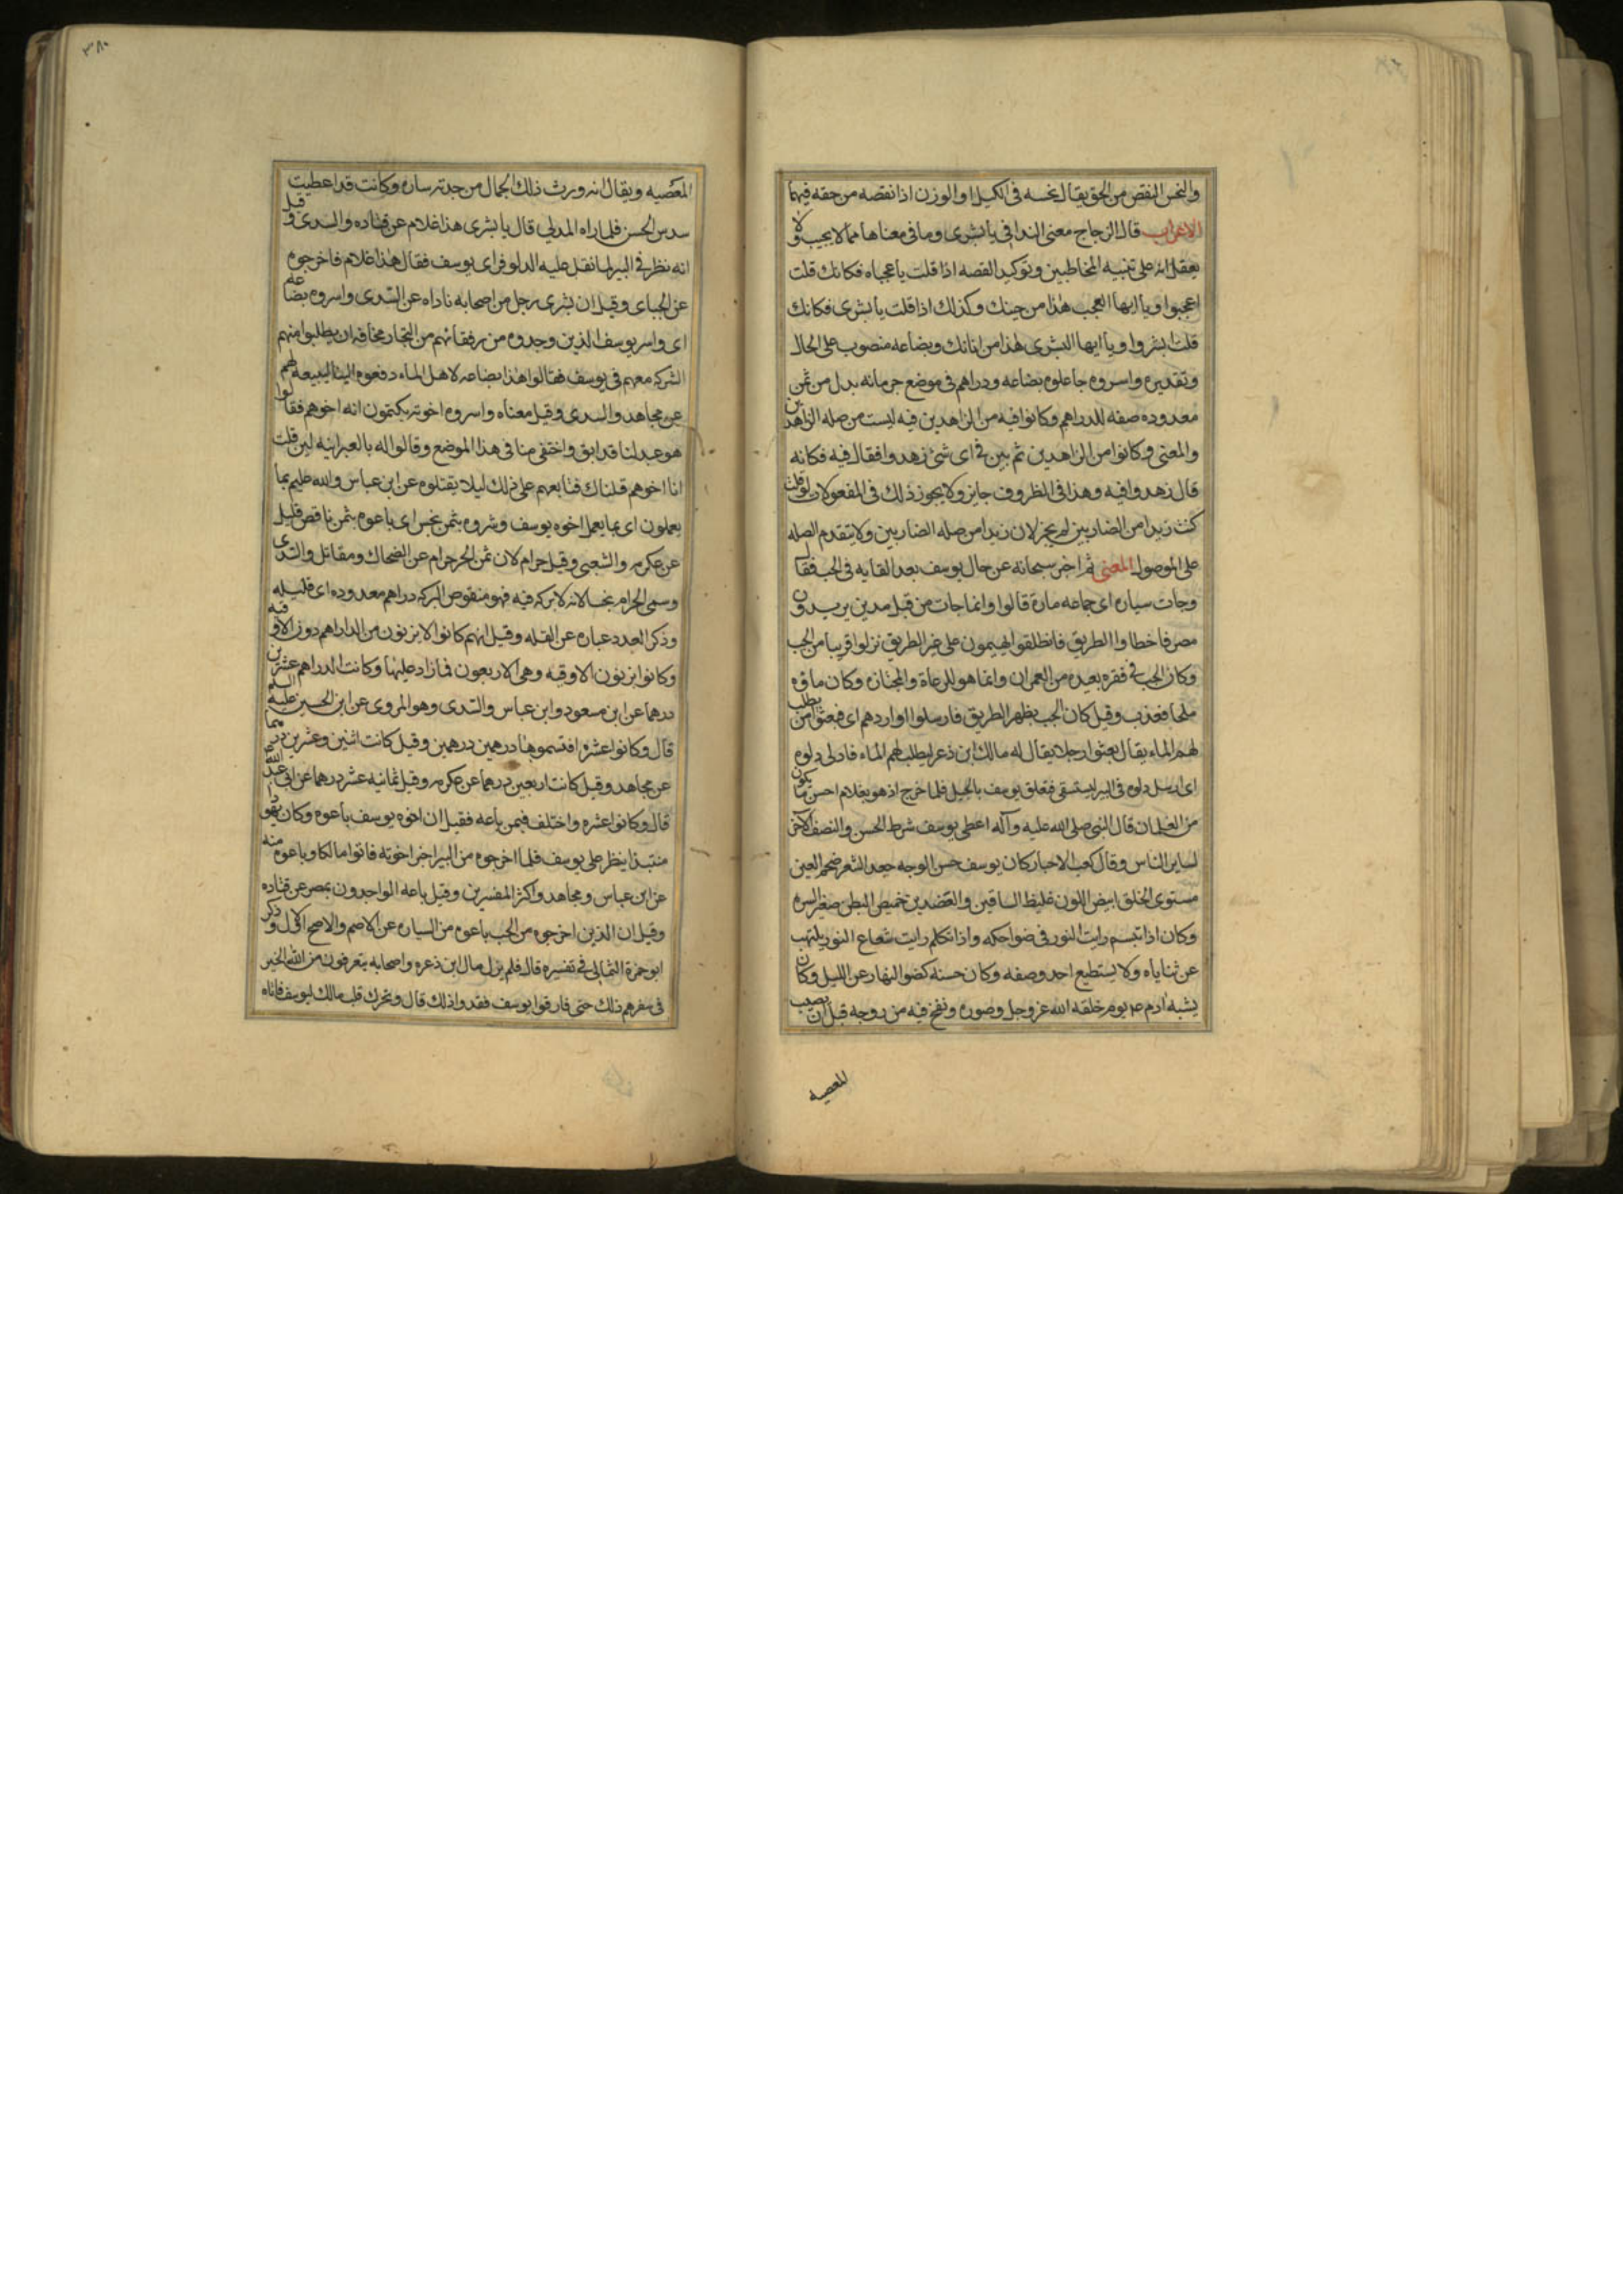 والبخس النقص من الحق يقال بخسه فى الكيل او الوزن اذا نقصه من حقه فيهما
الاعراب قال الزجاج معنى الندا فى يا بشرى وما فى معناها مما لا يجيب ولا
يعقل انه على تنبيه المخاطبين وتوكيد القصه اذا قلت يا عجباه فكانك قلت
اعجبوا ويا ايها العجب هذا من حينك وكذلك اذا قلت يا بشرى فكانك
قلت ابشروا ويا ايها البشرى هذا من انانك وبضاعه منصوب على الحال
وتقديره واسروه جاعلوه بضاعه ودراهم فى موضع جر بانه بدل من ثمن
معدوده صفه للدراهم وكانوا فيه من الزاهدين فيه ليست من صله الزاهدين
والمعنى وكانوا من الزاهدين ثم بين فى اى شئ زهدوا فقال فيه فكانه
قال زهدوا فيه وهذا فى الظروف جايز ولا يجوز ذلك فى المفعولات لو قلت
كنت زيدا من الضاربين لم يجز لان زيدا من صله الضاربين ولا يتقدم الصله
على الموصول المعنى ثم اخبر سبحانه عن حال يوسف بعد القايه فى الجب فقال
وجات سياره اى جماعه مارة قالوا وانما جات من قبل مدين يريدون
مصر فاخطاوا الطريق فانطلقوا يهيمون على غير الطريق نزلوا قريبا من الجب
وكان الجب فى فقره بعيده من العمران وانما هو للرعاة والمجتازه وكان ماوه
ملحا فعذب وقيل كان الجب بظهر الطريق فارسلوا واردهم اى فبعثوا من يطلب
لهم الماء يقال بعثوا رجلا يقال له مالك ابن ذعر ليطلب لهم الماء فادلى دلوه
اى ارسل دلوه فى البير ليستقى فتعلق يوسف بالحبل فلما خرج اذ هو بغلام احسن ما يكون
من الغلمان قال النبى صلى الله عليه وآله اعطى يوسف شرط الحسن والنصف الآخر
لساير الناس وقال كعب الاحبار كان يوسف حسن الوجه جعد الشعر ضخم العين
مستوى الخلق ابيض اللون غليظ الساقين والعضدين خميص البطن صغير السره
وكان اذا تبسم رايت النور فى ضواحكه واذا تكلم رايت شعاع النور يلتهب
عن ثناياه ولا يستطيع احد وصفه وكان حسنه كضو النهار عن الليل وكان
يشبه ادم ع يوم خلقه الله عز وجل وصوره ونفخ فيه من روحه قبل ان يصيب
المعصيه
٣٨٠
المعصيه ويقال انه ورث ذلك الجمال من جدته ساره وكانت قد اعطيت
سدس الحسن فلما راه المدلي قال يا بشرى هذا غلام عن قتاده والسدى وقيل
انه نظر فى البير لما ثقل عليه الدلو فراى يوسف فقال هذا غلام فاخرجوه
عن الجباى وقيل ان بشرى رجل من اصحابه ناداه عن السدى واسروه بضاعه
اى واسر يوسف الذين وجدوه من رفقائهم من التجار مخافه ان يطلبوا منهم
الشركه معهم فى يوسف فقالوا هذا بضاعه لاهل الماء دفعوه الينا لنبيعه لهم
عن مجاهد والسدى وقيل معناه واسروه اخوته يكتمون انه اخوهم فقالوا
هو عبد لنا قد ابق واختفى منا فى هذا الموضع وقالوا له بالعبرانيه لين قلت
انا اخوهم قتلناك فتابعهم على ذلك ليلا يقتلوه عن ابن عباس والله عليم بما
يعملون اى بما يعمل اخوه يوسف وشروه بثمن بخس اى باعوه بثمن ناقص قليل
عن عكرمه والشعبى وقيل حرام لان ثمن الحر حرام عن الضحاك ومقاتل والسدى
وسمى الحرام بخسا لانه لا بركه فيه فهو منقوص البركه دراهم معدوده اى قليله
وذكر العدد عباره عن القله وقيل انهم كانوا لا يزنون من الدراهم دون الاوقيه
وكانوا يزنون الاوقيه وهى الاربعون فما زاد عليها وكانت الدراهم عشرين
درهما عن ابن مسعود وابن عباس والسدى وهو المروى عن ابن الحسين عليه السلم
قال وكانوا عشره اقتسموها درهمين درهمين وقيل كانت اثنين وعشرين درهما
عن مجاهد وقيل كانت اربعين درهما عن عكرمه وقيل ثمانيه عشر درهما عن ابى عبد الله
قال وكانوا عشره واختلف فيمن باعه فقيل ان اخوه يوسف باعوه وكان يهودا
منتبذا ينظر على يوسف فلما اخرجوه من البير اخبر اخوته فاتوا مالكا وباعوه منه
عن ابن عباس ومجاهد واكثر المفسرين وقيل باعه الواجدون بمصر عن قتاده
وقيل ان الذين اخرجوه من الجب باعوه من السياره عن الاصم والاصح الاول وذكر
ابو حمزة الثمالى فى تفسيره قال فلم يزل مال ابن ذعره واصحابه يتعرفون من الله الخير
فى سفرهم ذلك حتى فارقوا يوسف ففقدوا ذلك قال وتحرك قلب مالك ليوسف فاتاه